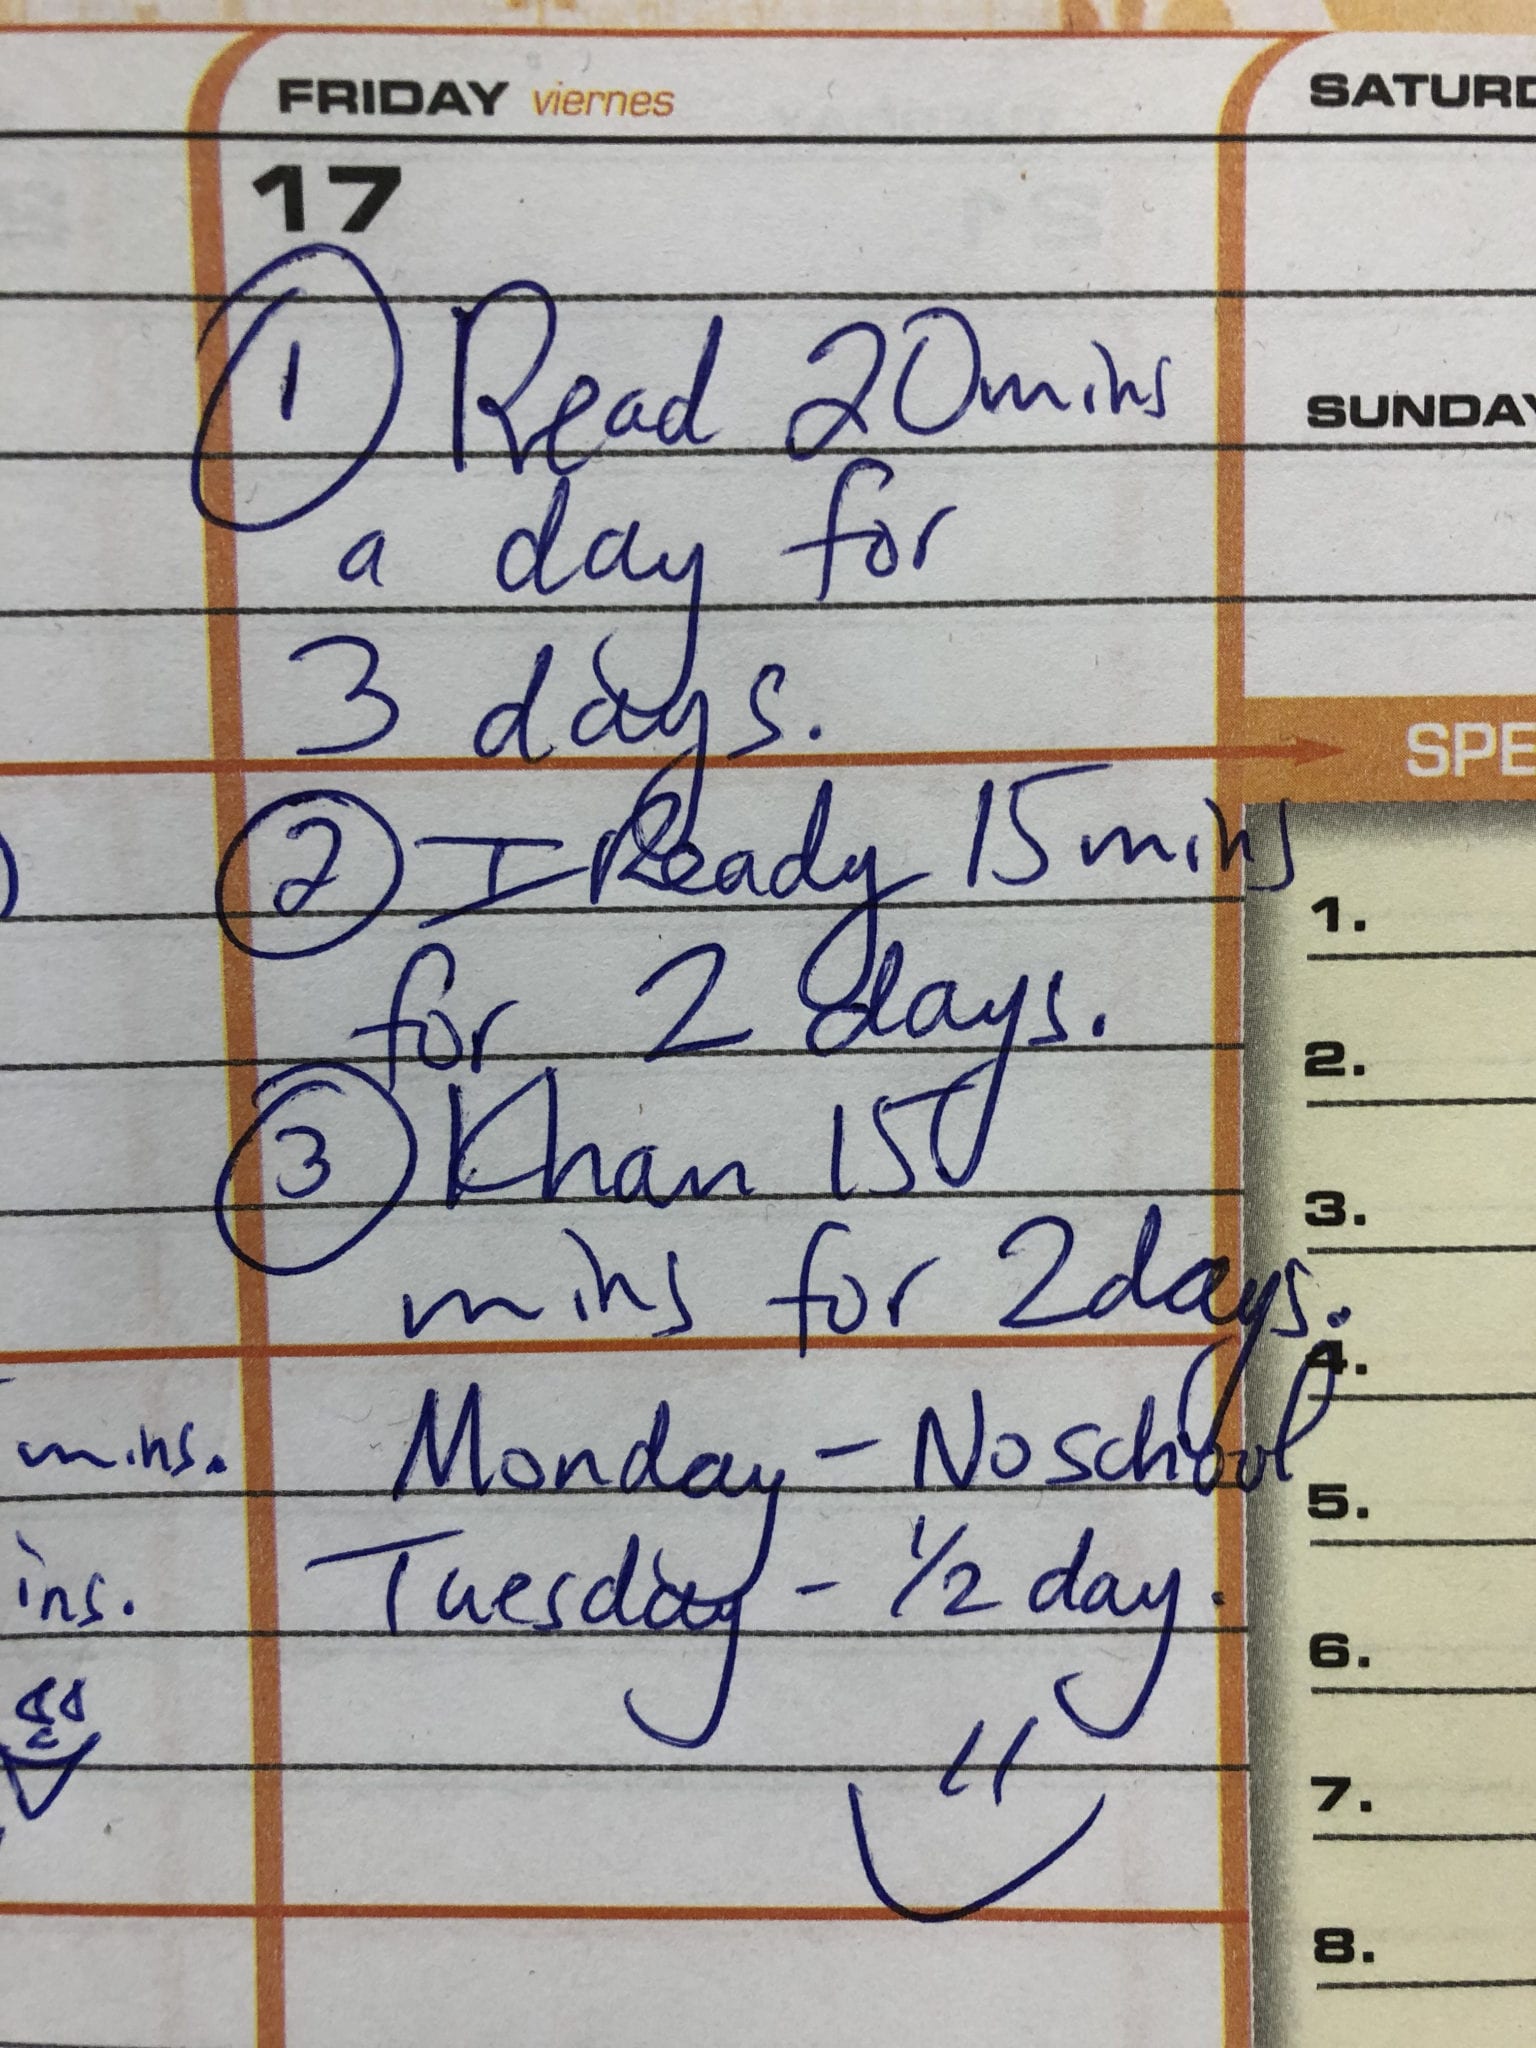 FRIDAY viernes
17
① Read 20mins
a day for
3 days.
② I-Ready 15mins
for 2 days.
③ Khan 15
mins for 2days.
Monday - No school
Tuesday - 1/2 day.
mins.
ins.
SATURD
SUNDAY
SPE
1.
2.
3.
4.
5.
6.
7.
8.